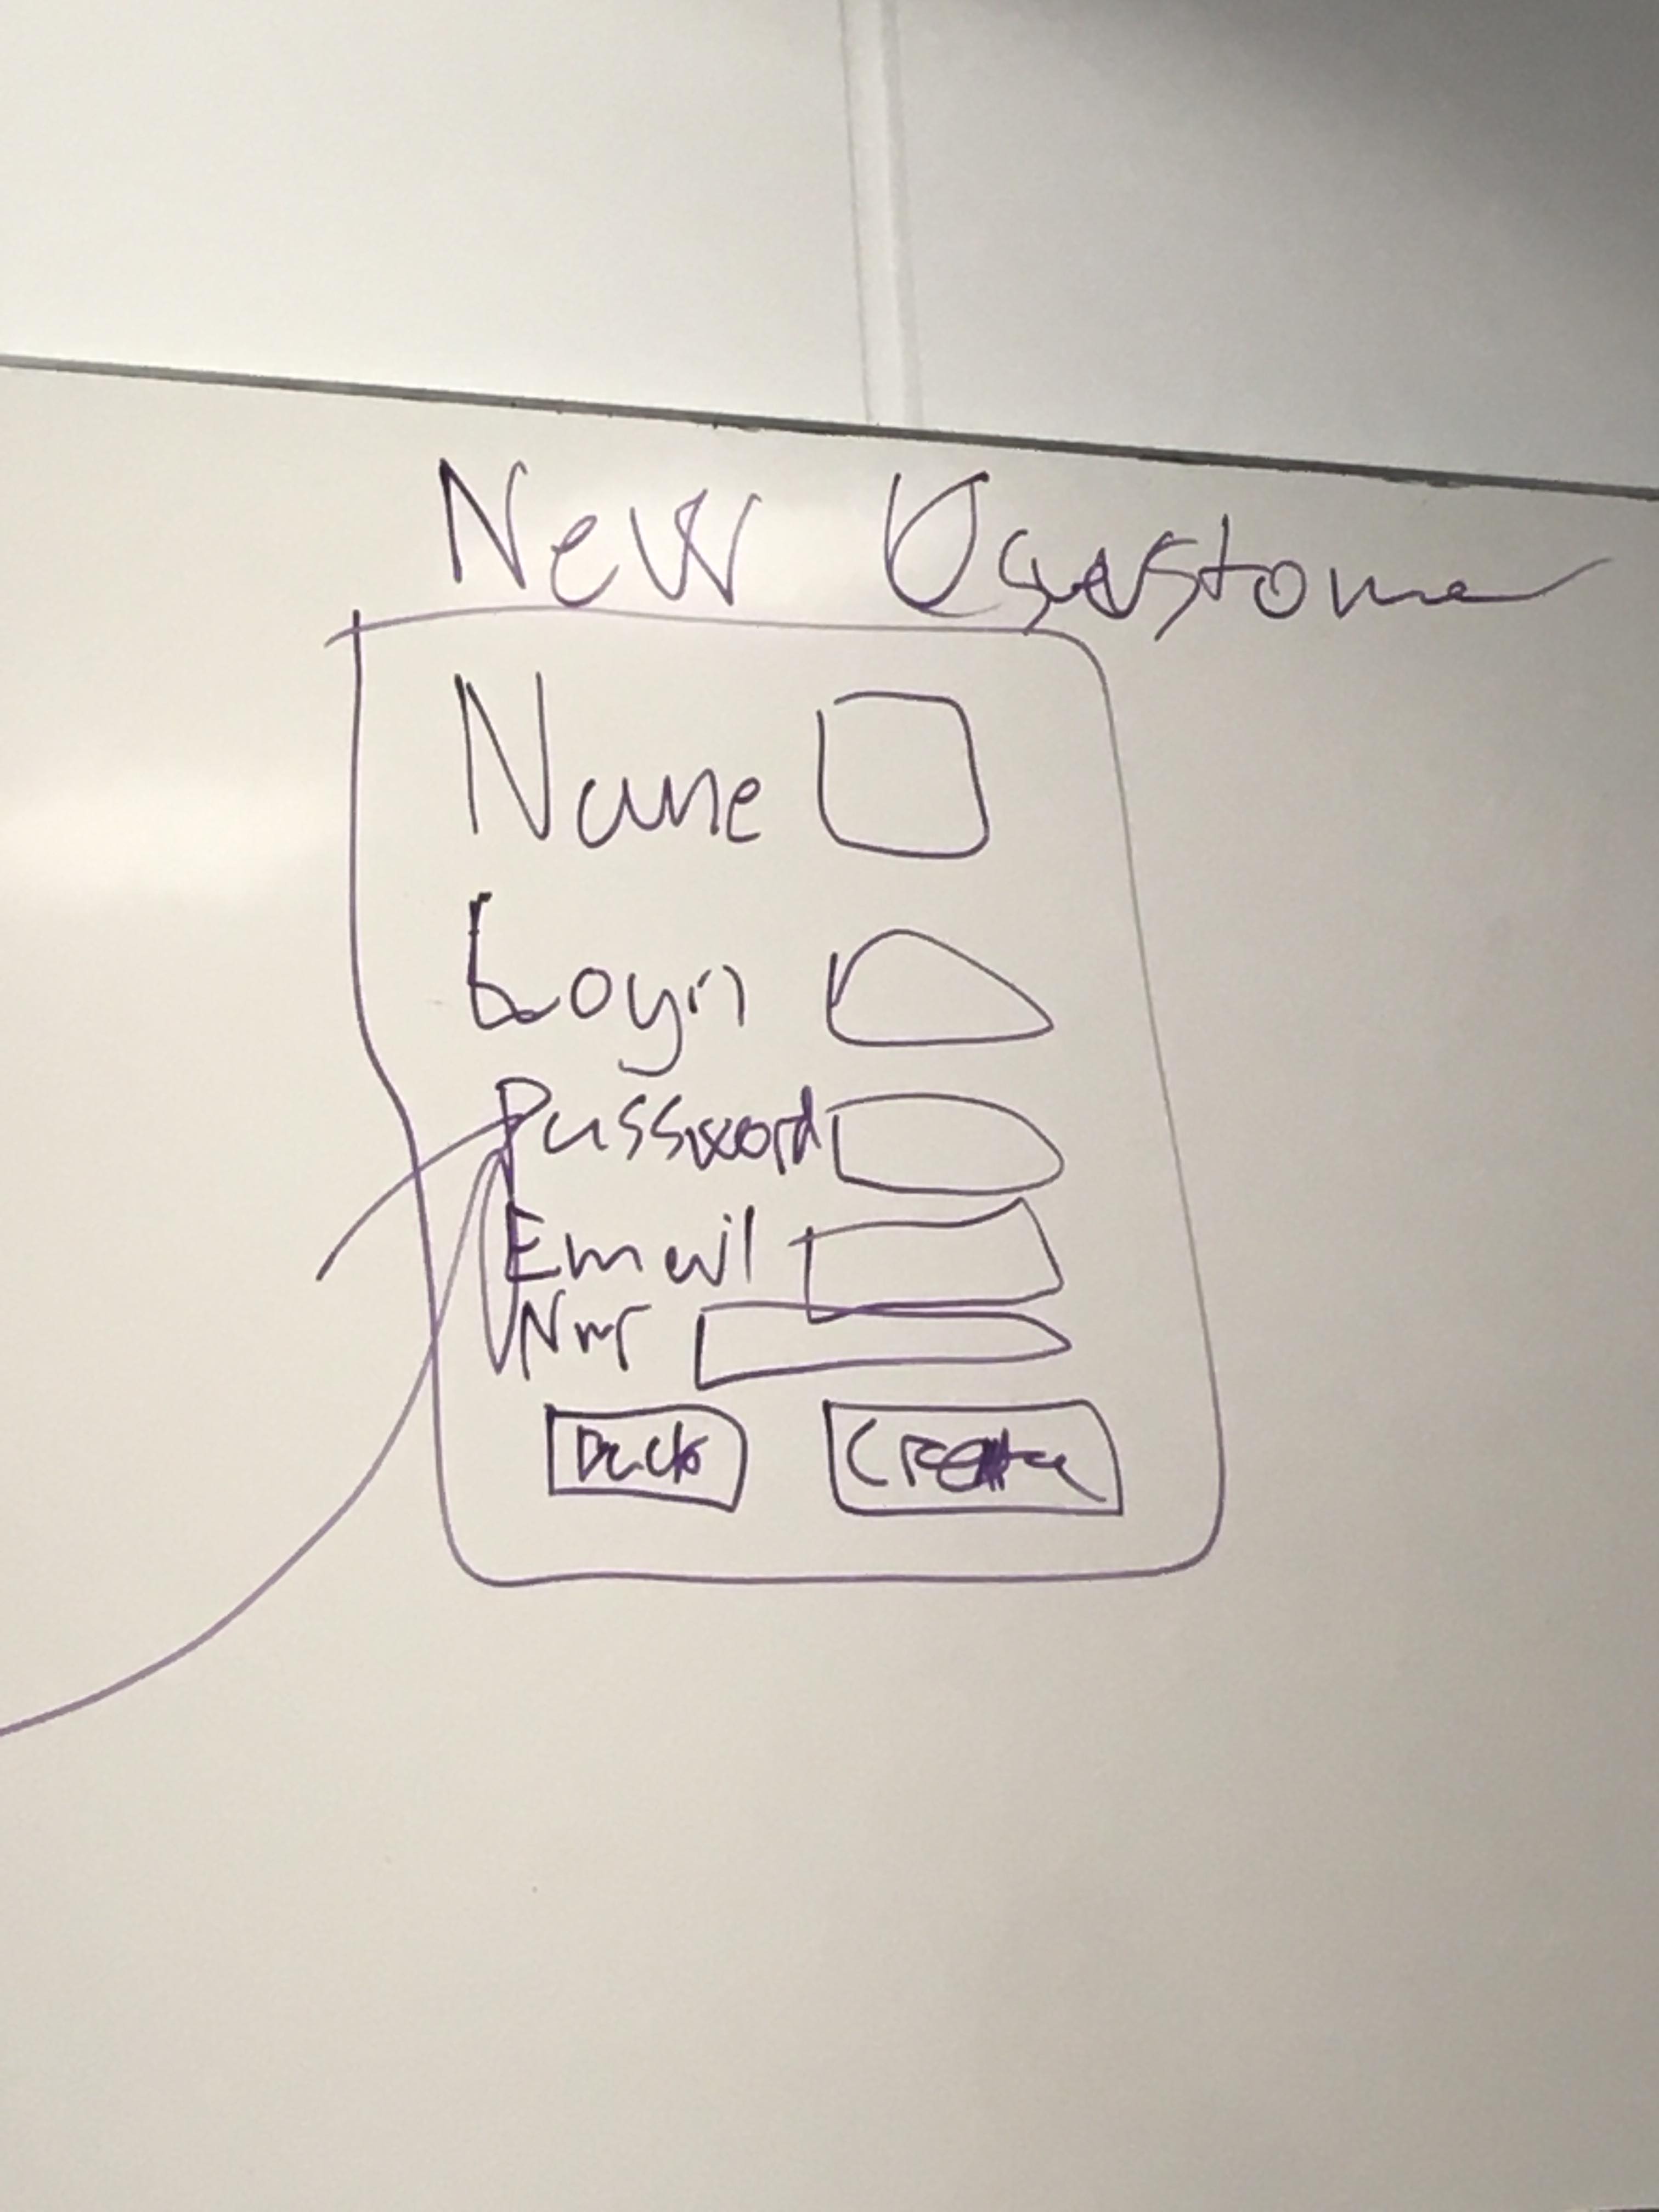 New Customer
Name
Login
Password
Email
Nmr
Back
Create